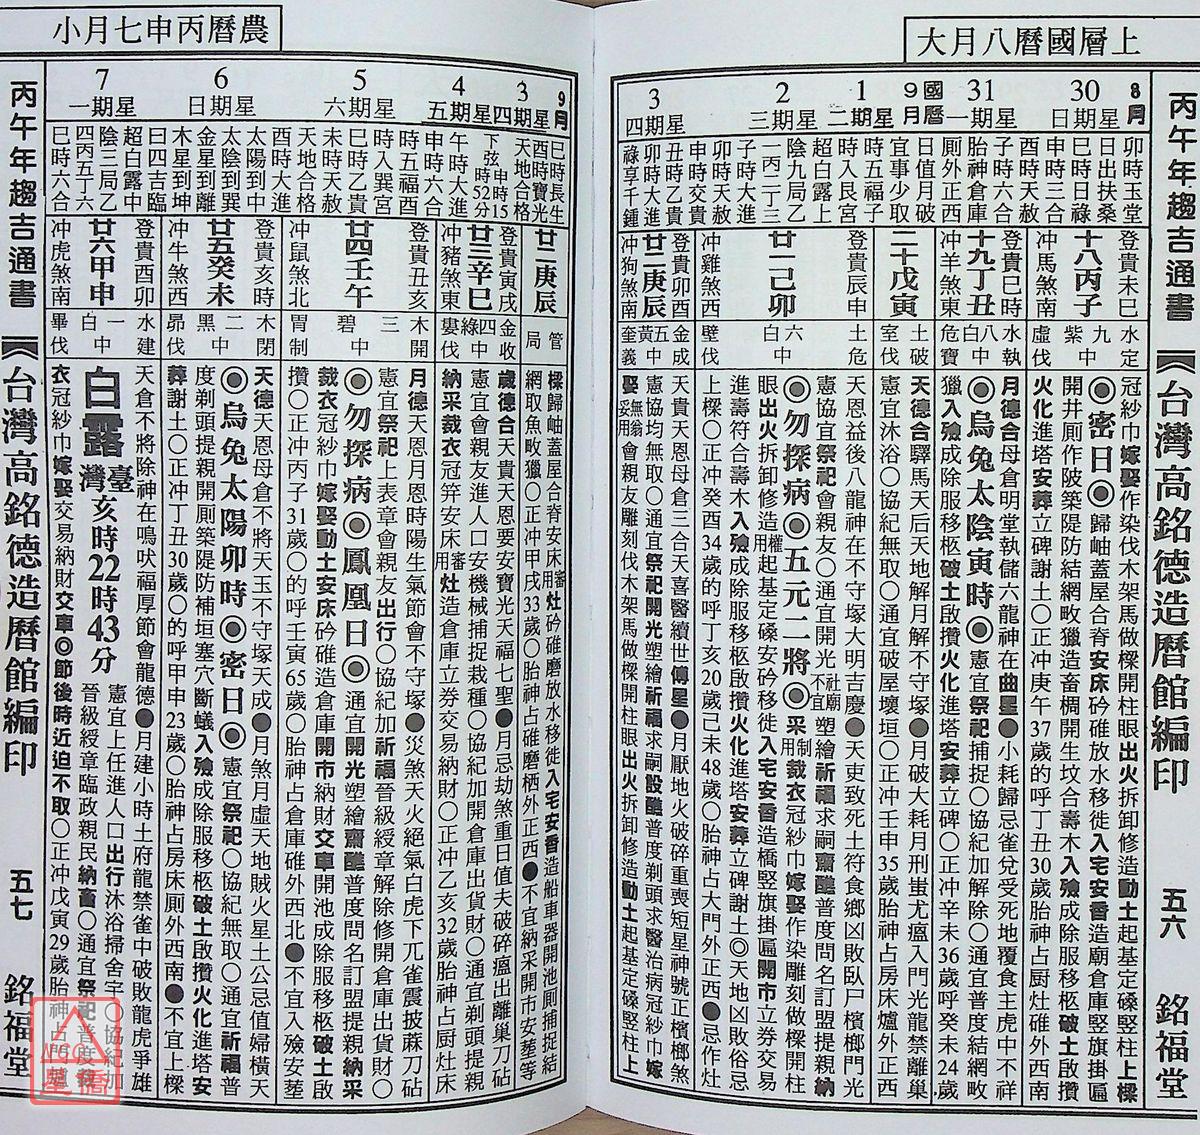 上層國曆八月大
丙午年趨吉通書
【台灣高銘德造曆館編印
五六 銘福堂
8月
30
星期日
卯時玉堂
日出扶桑
巳時日祿
申時三合
酉時天赦
登貴未巳
十八丙子
沖馬煞南
水定
九紫中
虛伐
冠紗巾嫁娶作染伐木架馬做樑開柱眼出火拆卸修造動土起基定磉竪柱上樑
◎密日◎歸岫蓋屋合脊安床砛碓放水移徙入宅安香造廟倉庫竪旗掛匾
開井厠作陂築隄防結網畋獵造畜椆開生坟合壽木入殮成除服移柩破土啟攢
火化進塔安葬立碑謝土○正沖庚午37歲的呼丁丑30歲胎神占厨灶碓外西南
31
星期一
子時大進
子時六合
胎神倉庫
厠外正西
登貴巳時
十九丁丑
沖羊煞東
水執
八白中
危寶
月德合母倉明堂執儲六龍神在曲星●小耗歸忌雀兌受死地覆食主虎中不祥
◎烏兔太陰寅時◎憲宜祭祀捕捉○協紀加解除○通宜普度結網畋
獵入殮成除服移柩破土啟攢火化進塔安葬立碑○正沖辛未36歲呼癸未24歲
國曆9月
1
星期二
日值月破
宜事少取
時五福子
時入艮宮
超白露上
二十戊寅
土破
室伐
天德合驛馬天后天地解月解不守塚●月破大耗月刑蚩尤瘟入門光龍禁離巢
憲宜沐浴○協紀無取○通宜破屋壞垣○正沖壬申35歲胎神占房床爐外正西
2
星期三
陰九局乙
一丙二丁三
子時大進
登貴辰申
廿一己卯
沖雞煞西
土危
六白中
壁伐
天恩益後八龍神在不守塚大明吉慶●天吏致死土符食鄉凶敗臥尸檳榔門光
憲協宜祭祀會親友○通宜開光社廟不宜塑繪祈福求嗣齋醮普度問名訂盟提親納
◎勿探病◎五元二將◎采制用裁衣冠紗巾嫁娶作染雕刻做樑開柱
眼出火拆卸修造用權起基定磉安砛移徙入宅安香造橋竪旗掛匾開市立券交易
進壽符合壽木入殮成除服移柩啟攢火化進塔安葬立碑謝土◎天地凶敗俗忌
上樑○正沖癸酉34歲的呼丁亥20歲己未48歲○胎神占大門外正西●忌作灶
3
星期四
卯時天赦
申時交貴
丑時乙貴
卯時大進
祿享千鍾
登貴卯酉
廿二庚辰
沖狗煞南
金成
五黃中
奎義
天貴天恩母倉三合天喜醫續世傅星●月厭地火破碎重喪短星神號正檳榔煞
憲協均無取○通宜祭祀開光塑繪祈福求嗣設醮普度剃頭求醫治病冠紗巾嫁
娶無翁妥用會親友雕刻伐木架馬做樑開柱眼出火拆卸修造動土起基定磉竪柱上
農曆丙申七月小
9月
3
星期四
巳時長生
酉時寶光
天地合格
廿二庚辰
管局
樑歸岫蓋屋合脊安床審用灶砛碓磨放水移徙入宅安香造船車器開池厠捕捉結
網取魚畋獵○正沖甲戌33歲○胎神占碓磨栖外正西●不宜納采開市安葬等
4
星期五
下弦申時15時52分
午時大進
申時六合
登貴寅戌
廿三辛巳
沖豬煞東
金收
四綠中
婁伐
歲德合天貴天恩要安寶光天福七聖●月忌劫煞重日值夫破碎瘟出離巢刀砧
憲宜會親友進人口安機械捕捉栽種○協紀加開倉庫出貨財○通宜剃頭提親
納采裁衣冠笄安床審用灶造倉庫立券交易納財○正沖乙亥32歲胎神占厨灶床
5
星期六
時五福酉
時入巽宮
巳時乙貴
未時天赦
天地合格
登貴丑亥
廿四壬午
沖鼠煞北
木開
三碧中
胃制
月德天恩月恩時陽生氣節會不守塚●災煞天火絕氣白虎下兀雀震披蔴刀砧
憲宜祭祀上表章會親友出行○協紀加祈福晉級綬章解除修開倉庫出貨財○
◎勿探病◎鳳凰日◎通宜開光塑繪齋醮普度問名訂盟提親納采
裁衣冠紗巾嫁娶動土安床砛碓造倉庫開市納財交車開池成除服移柩破土啟
攢○正沖丙子31歲○的呼壬寅65歲○胎神占倉庫碓外西北●不宜入殮安葬
6
星期日
酉時大進
太陽中丁
太陰到巽
金星到離
木星到坤
登貴亥時
廿五癸未
沖牛煞西
木閉
二黑中
昴伐
天德天恩母倉不將天玉不守塚天成●月煞月虛天地賊火星土公忌值婦橫天
◎烏兔太陽卯時◎密日◎憲宜祭祀○協紀無取○通宜祈福普
度剃頭提親開厠築隄防補垣塞穴斷蟻入殮成除服移柩破土啟攢火化進塔安
葬謝土○正沖丁丑30歲○的呼甲申23歲○胎神占房床厠外西南●不宜上樑
7
星期一
曰四吉臨
超白露中
陰三局乙
四丙五丁六
巳時六合
登貴酉卯
廿六甲申
沖虎煞南
水建
一白中
畢伐
天倉不將除神在鳴吠福厚節會龍德●月建小時土府龍禁雀中破敗龍虎爭雄
白露臺灣亥時22時43分
憲宜上任進人口出行沐浴掃舍宇○協紀加
晉級綬章臨政親民納畜○通宜祭祀普度裁
衣冠紗巾嫁娶交易納財交車◎節後時近迫不取○正沖戊寅29歲胎神占門爐
丙午年趨吉通書
【台灣高銘德造曆館編印
五七 銘福堂